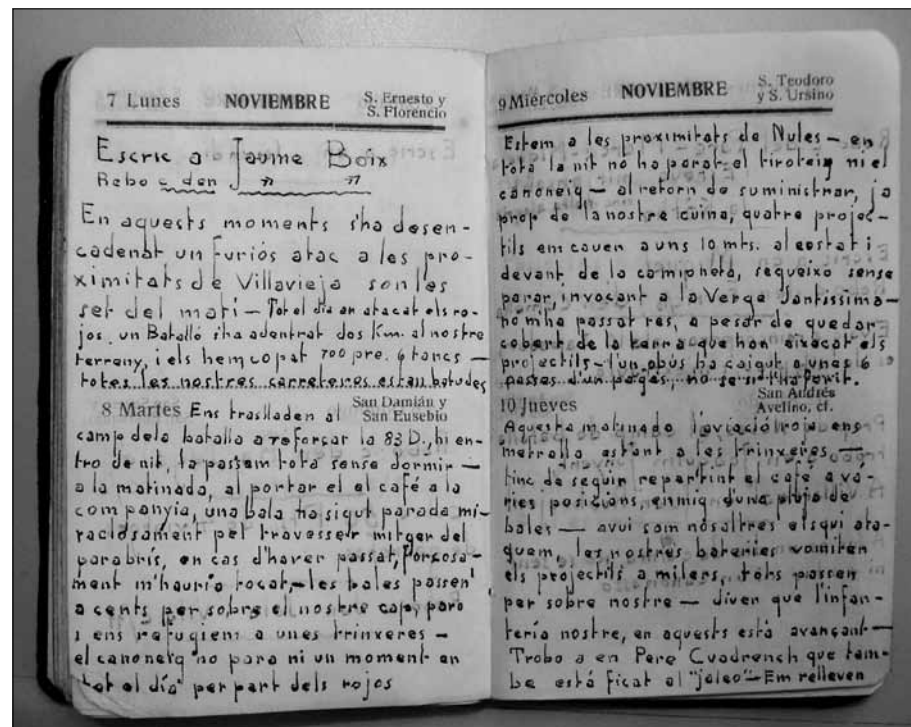 7 Lunes NOVIEMBRE S. Ernesto y
S. Florencio
Escric a Jaume Boix
Rebo c den " "
En aquests moments s'ha desen-
cadenat un furiós atac a les pro-
ximitats de Villavieja son les
set del matí — Tot el día an atacat els ro-
jos, un Batalló s'ha adentrat dos Km. al nostre
terreny, i els hem copat 700 pre. 6 tancs —
totes les nostres carreteres estan batudes
8 Martes San Damián y
San Eusebio
Ens traslladen al
camp dela batalla a reforçar la 83 D., hi en-
tro de nit, la passem tota sense dormir —
a la matinada, al portar el el café a la
companyia, una bala ha sigut parada mi-
raclosament pel travesser mitger del
parabrís, en cas d'haver passat, forçosa-
ment m'hauría tocat, — les bales passen
a cents per sobre el nostre cap, paro
i ens refugiem a unes trinxeres —
el canoneig no para ni un moment en
tot el día per part dels rojos
9 Miércoles NOVIEMBRE S. Teodoro
y S. Ursino
Estem a les proximitats de Nules — en
tota la nit no ha parat el tiroteig ni el
canoneig — al retorn de suministrar, ja
prop de la nostre cuina, quatre projec-
tils em cauen a uns 10 mts. al costat i
devant de la camioneta, segueixo sense
parar, invocant a la Verge Santissima —
no m'ha passat res, a pesar de quedar
cobert de la terra que han aixecat els
projectils — l'un obús ha caigut a unes 6
passes d'un pagés, no se si l'ha ferit.
10 Jueves San Andrés
Avelino, cf.
Aquesta matinada l'aviació roja ens
metralla estant a les trinxeres, —
tinc de seguir repartint el café a vá-
ries posicions, enmig d'una pluja de
bales — avui som nosaltres els qui ata-
quem, les nostres bateríes vomiten
els projectils a milers, tots passen
per sobre nostre — diven que l'infan-
tería nostre, en aquests está avançant —
Trobo a en Pere Cuadrench que tam-
be está ficat al "jaleo" — Em relleven